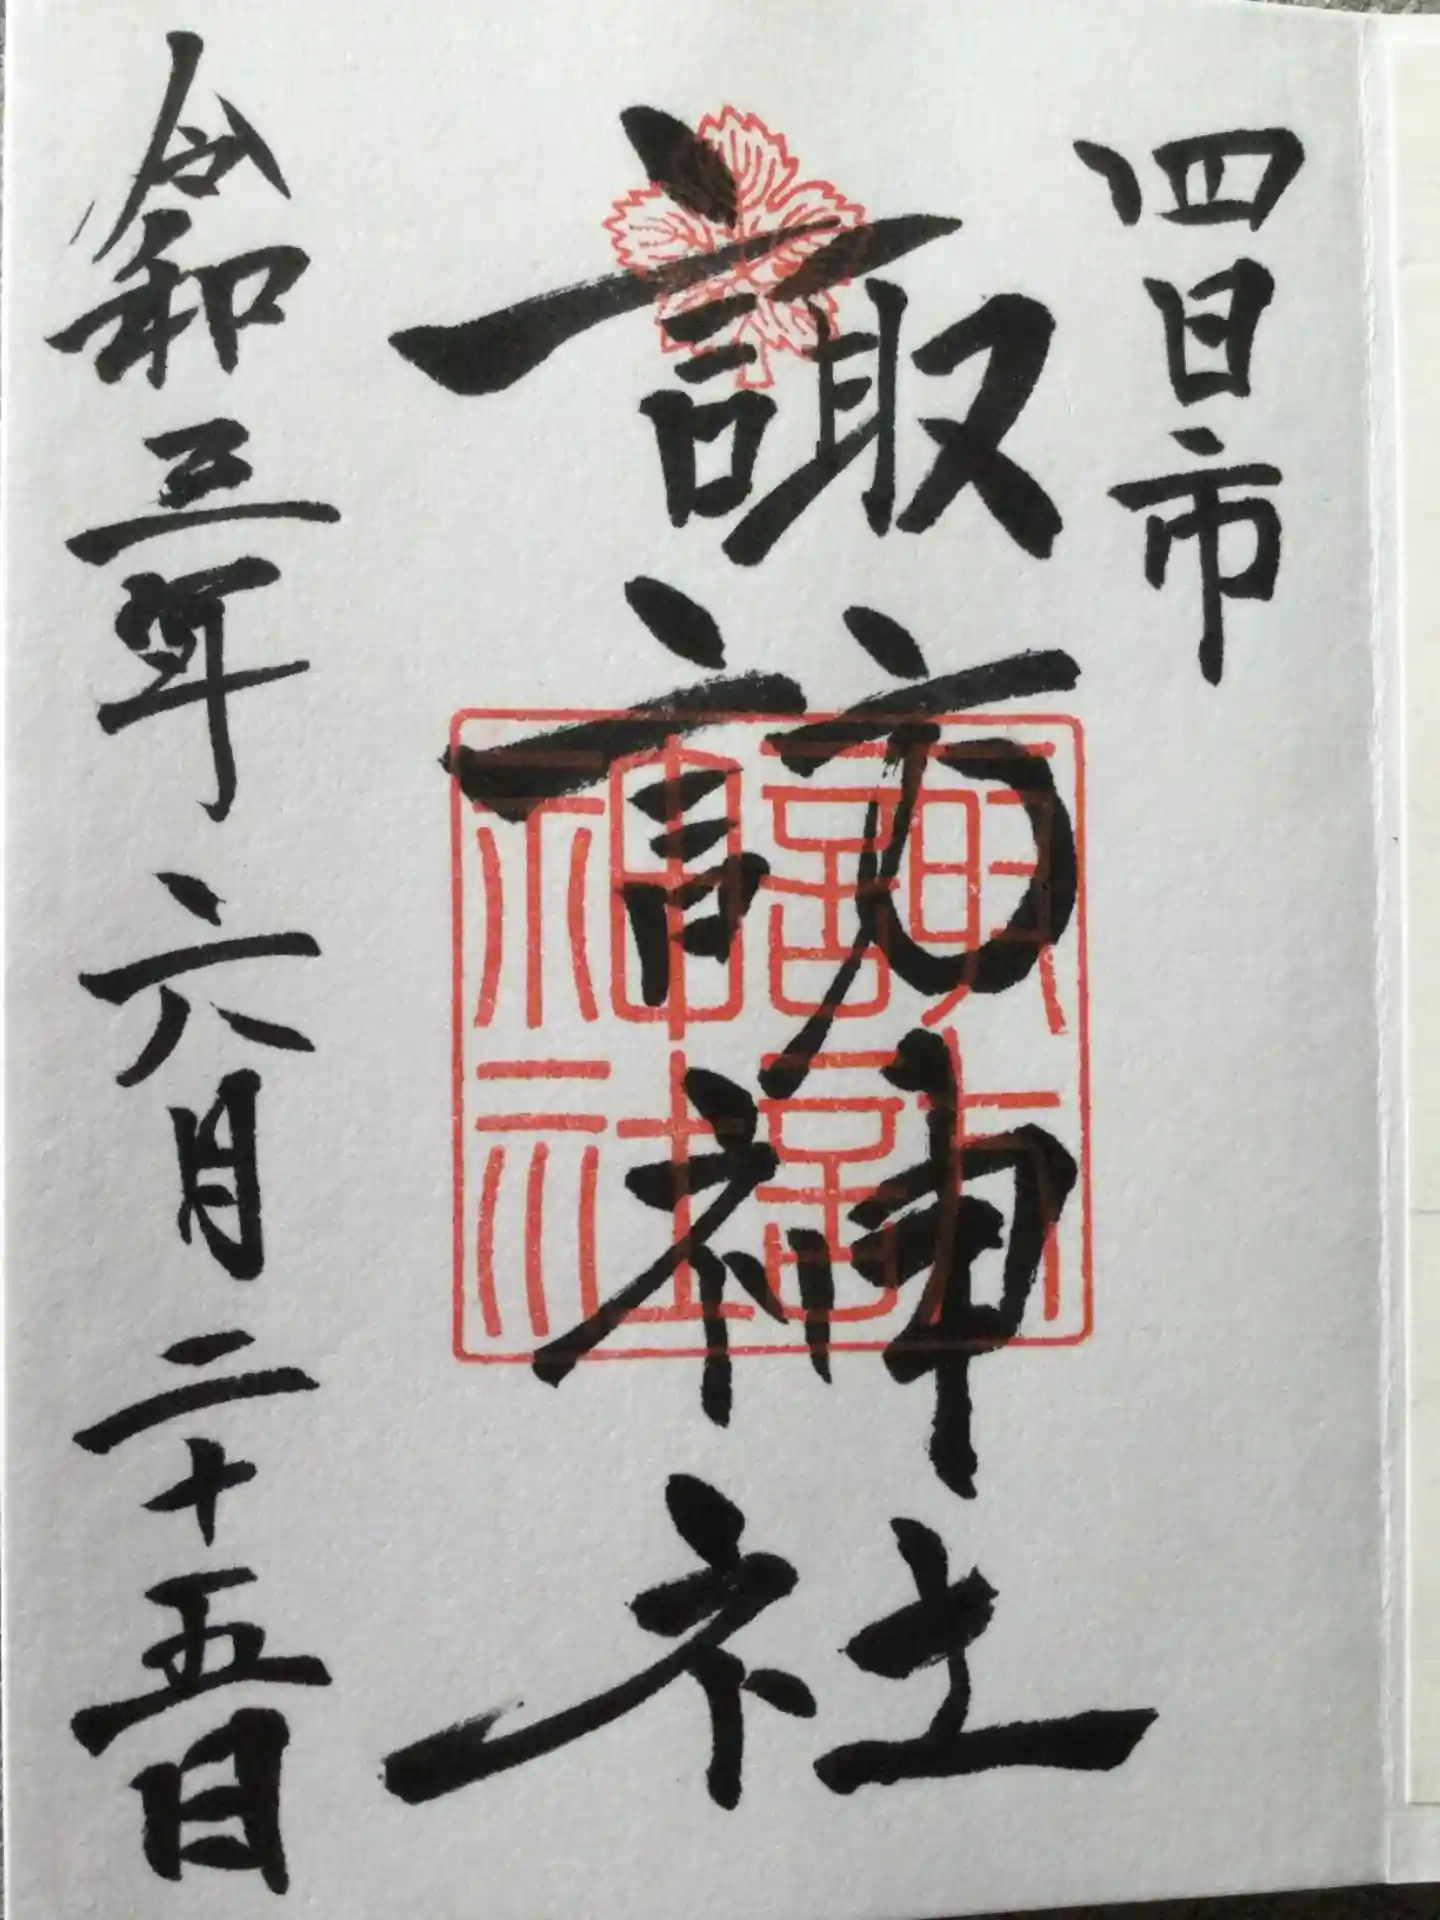 四日市
諏訪神社
諏訪神社
令和三年六月二十五日